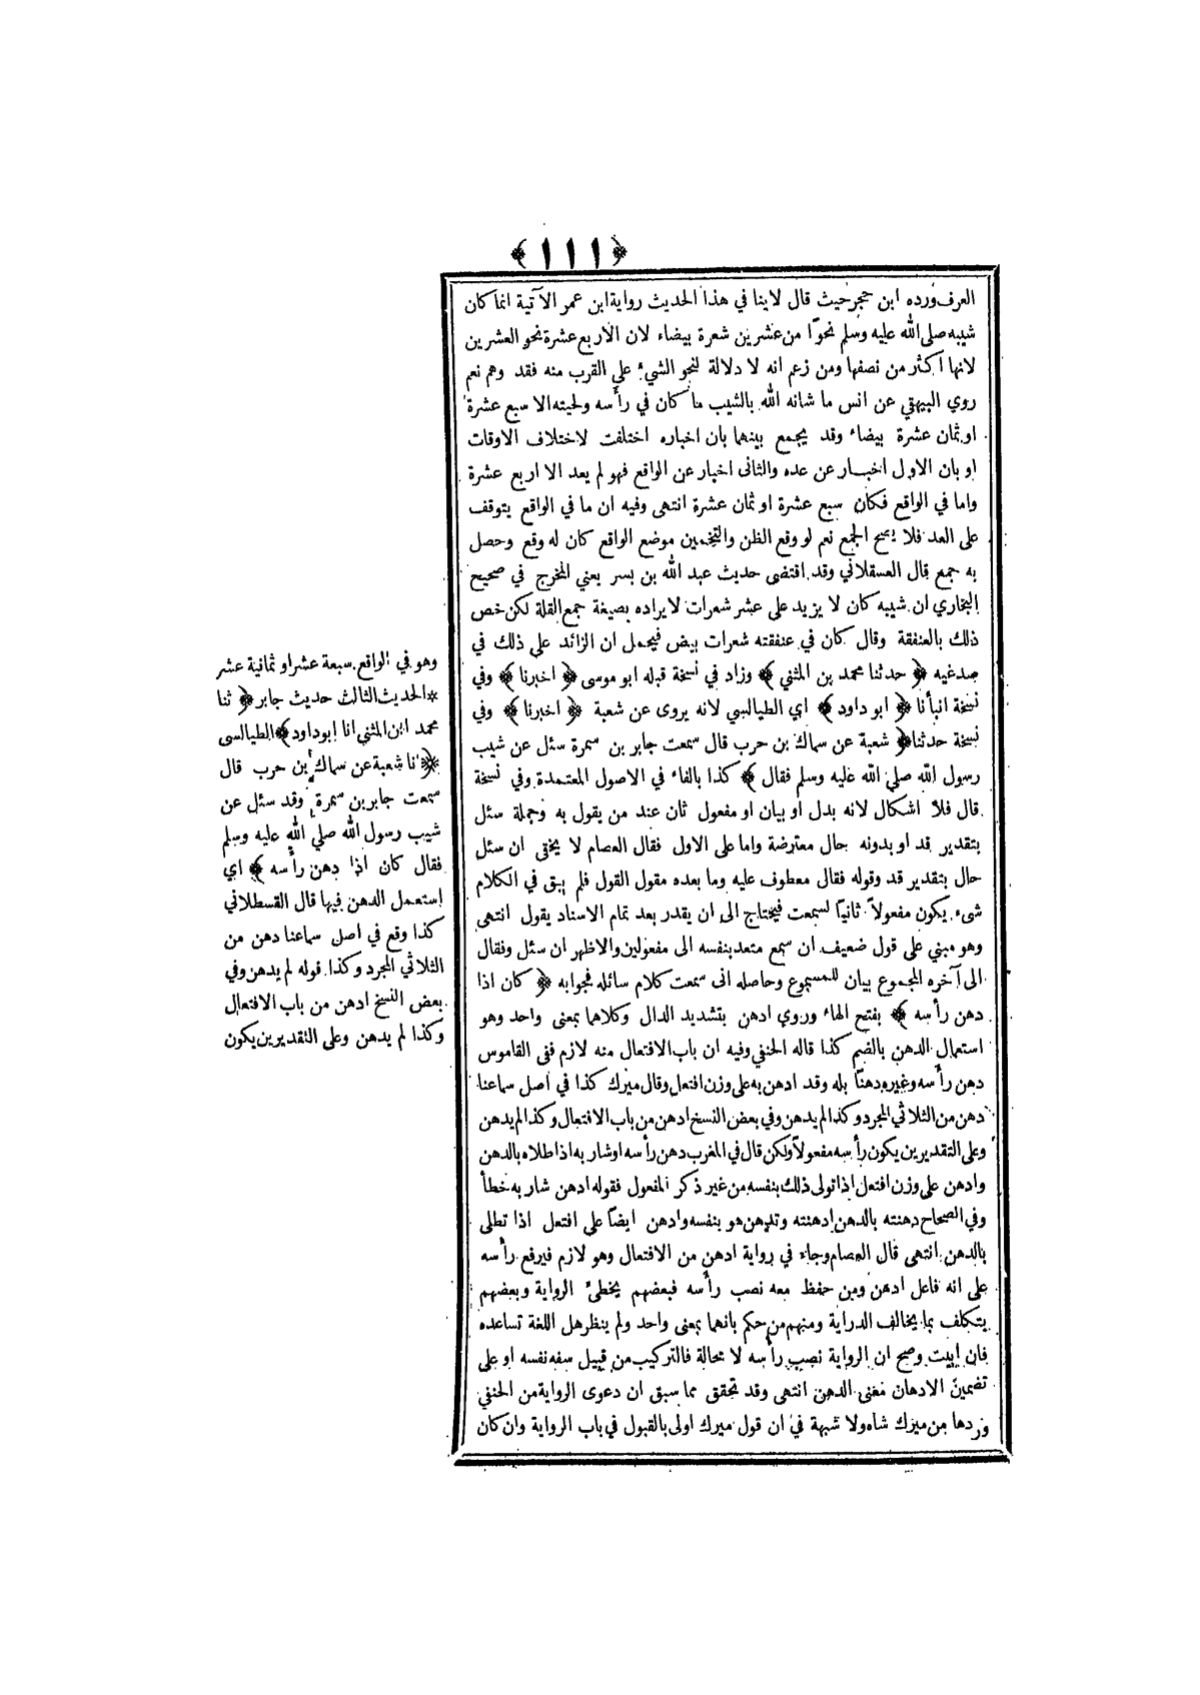 ﴿ ١١١ ﴾
العرف ورده ابن حجر حيث قال لاينا في هذا الحديث رواية ابن عمر الآتية انما كان
شيبه صلى الله عليه وسلم نحوا من عشرين شعرة بيضاء لان الاربع عشرة نحو العشرين
لانها اكثر من نصفها ومن زعم انه لا دلالة لنحو الشيء على القرب منه فقد وهم نعم
روي البيهقي عن انس ما شانه الله بالشيب ما كان في رأسه ولحيته الا سبع عشرة
او ثمان عشرة بيضاء وقد يجمع بينهما بان اخباره اختلفت لاختلاف الاوقات
او بان الاول اخبار عن عده والثانى اخبار عن الواقع فهو لم يعد الا اربع عشرة
واما في الواقع فكان سبع عشرة او ثمان عشرة انتهى وفيه ان ما في الواقع يتوقف
على العد فلا يصح الجمع نعم لو وقع الظن والتخمين موضع الواقع كان له وقع وحصل
به جمع قال العسقلاني وقد اقتضى حديث عبد الله بن بسر يعني المخرج في صحيح
البخاري ان شيبه كان لا يزيد على عشر شعرات لايراده بصيغة جمع القلة لكن خص
ذلك بالعنفقة وقال كان في عنفقته شعرات بيض فيحمل ان الزائد على ذلك في
صدغيه ﴿ حدثنا محمد بن المثني ﴾ وزاد في نسخة قبله ابو موسى ﴿ اخبرنا ﴾ وفي
نسخة انبأنا ﴿ ابو داود ﴾ اي الطيالسي لانه يروى عن شعبة ﴿ اخبرنا ﴾ وفي
نسخة حدثنا ﴿ شعبة عن سماك بن حرب قال سمعت جابر بن سمرة سئل عن شيب
رسول الله صلى الله عليه وسلم فقال ﴾ كذا بالفاء في الاصول المعتمدة وفي نسخة
قال فلا اشكال لانه بدل او بيان او مفعول ثان عند من يقول به وجملة سئل
بتقدير قد او بدونه حال معترضة واما على الاول فقال العصام لا يخفى ان سئل
حال بتقدير قد وقوله فقال معطوف عليه وما بعده مقول القول فلم يبق في الكلام
شيء يكون مفعولاً ثانيا لسمعت فيحتاج الى ان يقدر بعد تمام الاسناد يقول انتهى
وهو مبني على قول ضعيف ان سمع متعد بنفسه الى مفعولين والاظهر ان سئل وفقال
الى آخره المجموع بيان للمسموع وحاصله انى سمعت كلام سائله فجوابه ﴿ كان اذا
دهن رأسه ﴾ بفتح الهاء وروي ادهن بتشديد الدال وكلاهما بمعنى واحد وهو
استعمال الدهن بالضم كذا قاله الحنفي وفيه ان باب الافتعال منه لازم ففى القاموس
دهن رأسه وغيره دهنًا بله وقد ادهن به على وزن افتعل وقال ميرك كذا في اصل سماعنا
دهن من الثلاثي المجرد وكذا لم يدهن وفي بعض النسخ ادهن من باب الافتعال وكذا لم يدهن
وعلى التقديرين يكون رأسه مفعولاً ولكن قال في المغرب دهن رأسه اوشار به اذا طلاه بالدهن
وادهن على وزن افتعل اذا تولى ذلك بنفسه من غير ذكر المفعول فقوله ادهن شار به خطأ
وفي الصحاح دهنته بالدهن ادهنته وتدهن هو بنفسه وادهن ايضا على افتعل اذا تطلى
بالدهن انتهى قال العصام وجاء في رواية ادهن من الافتعال وهو لازم فيرفع رأسه
على انه فاعل ادهن ومن حفظ معه نصب رأسه فبعضهم يخطئ الرواية وبعضهم
يتكلف بما يخالف الدراية ومنهم من حكم بانهما بمعنى واحد ولم ينظر هل اللغة تساعده
فان ابيت وصح ان الرواية نصب رأسه لا محالة فالتركيب من قبيل سفه نفسه او على
تضمين الادهان معنى الدهن انتهى وقد تحقق مما سبق ان دعوى الرواية من الحنفي
وردها من ميرك شاه ولا شبهة في ان قول ميرك اولى بالقبول في باب الرواية وان كان
وهو في الواقع سبعة عشر او ثمانية عشر
*الحديث الثالث حديث جابر ﴿ ثنا
محمد ابن المثني انا ابو داود ﴾ الطيالسى
﴿ انا شعبة عن سماك بن حرب قال
سمعت جابر بن سمرة وقد سئل عن
شيب رسول الله صلى الله عليه وسلم
فقال كان اذا دهن رأسه ﴾ اي
استعمل الدهن فيها قال القسطلاني
كذا وقع في اصل سماعنا دهن من
الثلاثي المجرد وكذا قوله لم يدهن وفي
بعض النسخ ادهن من باب الافتعال
وكذا لم يدهن وعلى التقديرين يكون